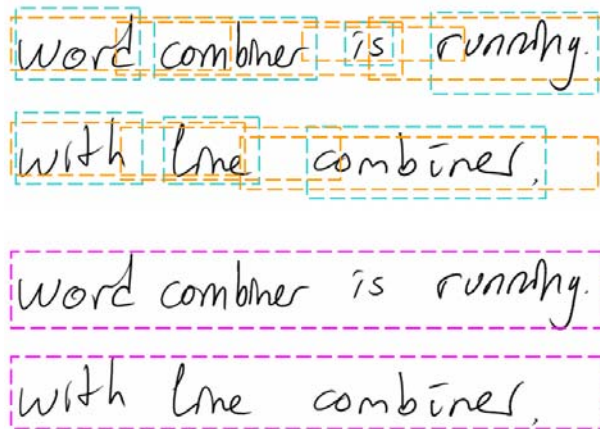 word combiner is running.
with line combiner,
word combiner is running.
with line combiner,